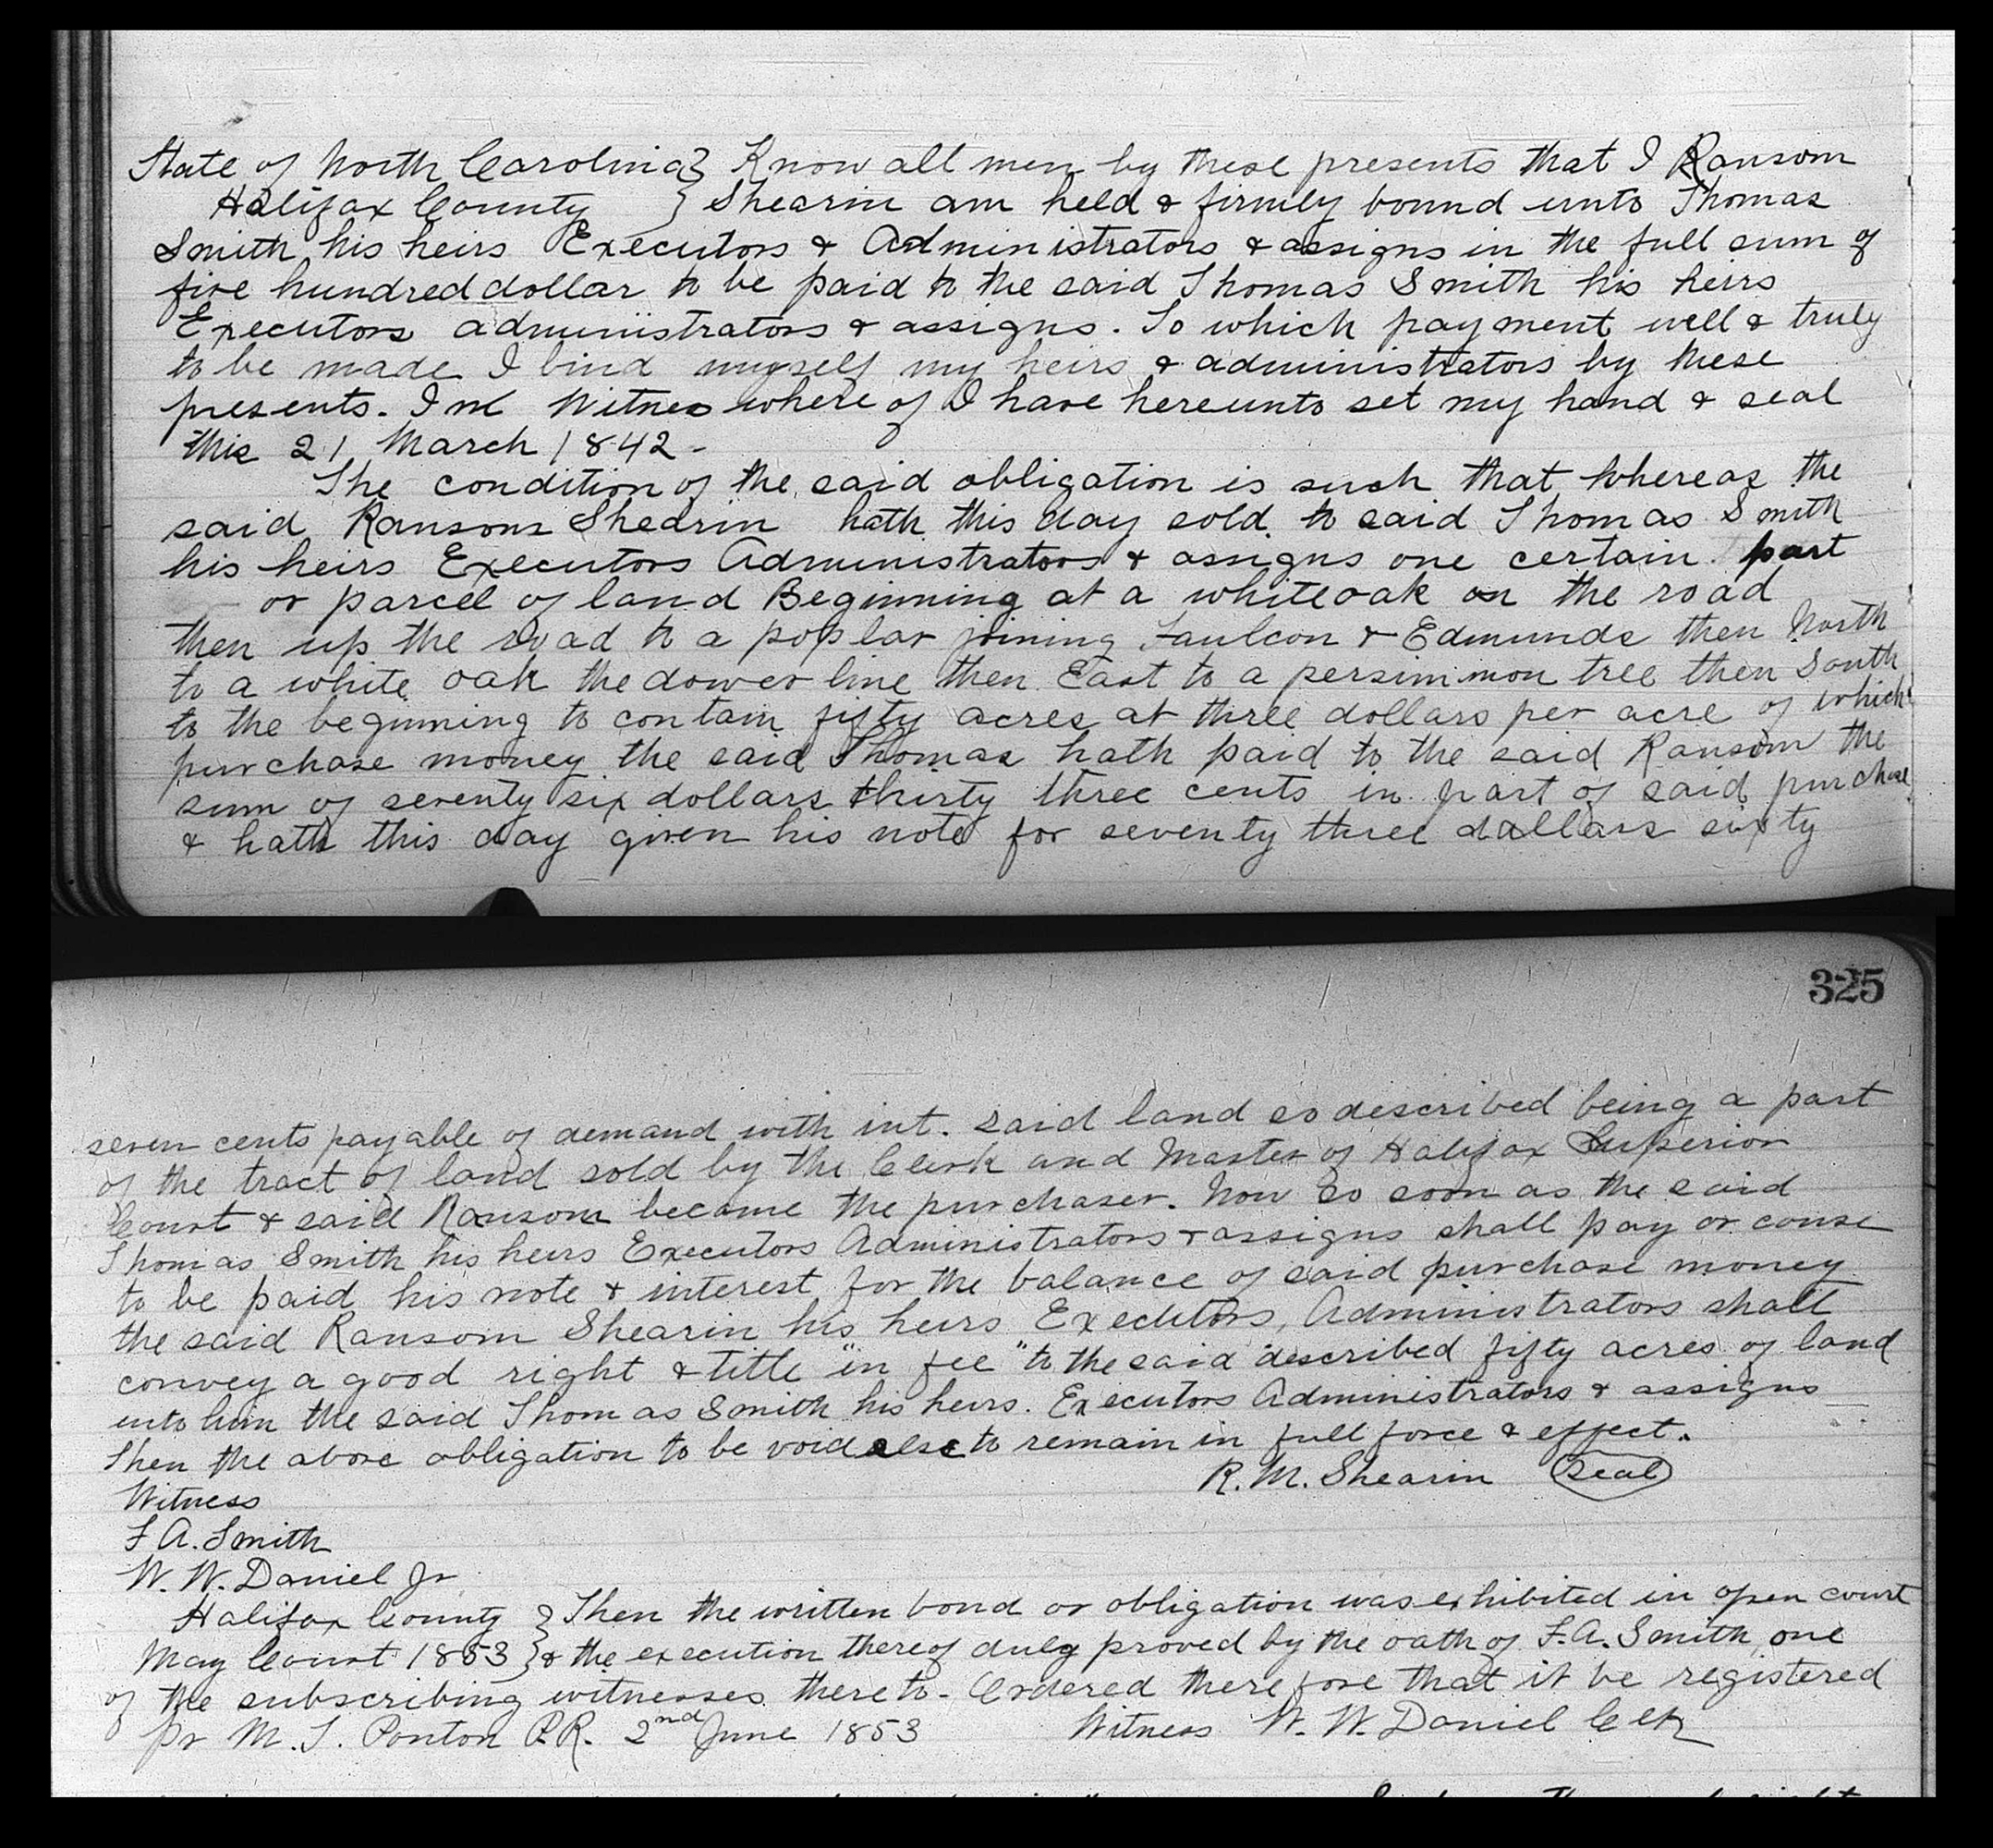 State of North Carolina } Know all men by these presents that I Ransom
Halifax County } Shearin am held & firmly bound unto Thomas
Smith his heirs Executors & Administrators & assigns in the full sum of
five hundred dollar to be paid to the said Thomas Smith his heirs
Executors administrators & assigns. To which payment well & truly
to be made I bind myself my heirs & administrators by these
presents. In Witness where of I have hereunto set my hand & seal
this 21 March 1842-
The condition of the said obligation is such that whereas the
said Ransom Shearin hath this day sold to said Thomas Smith
his heirs Executors Administrators & assigns one certain part
or parcel of land Beginning at a whiteoak on the road
then up the road to a poplar joining Faulcon & Edmunds then North
to a white oak the dower line then East to a persimmon tree then South
to the beginning to contain fifty acres at three dollars per acre of which
purchase money the said Thomas hath paid to the said Ransom the
sum of seventy six dollars thirty three cents in part of said purchase
& hath this day given his note for seventy three dollars sixty
325
seven cents payable of demand with int. said land so described being a part
of the tract of land sold by the Clerk and Master of Halifax Superior
Court & said Ransom became the purchaser. Now so soon as the said
Thomas Smith his heirs Executors Administrators & assigns shall pay or cause
to be paid his note & interest for the balance of said purchase money
the said Ransom Shearin his heirs Executors, Administrators shall
convey a good right & title "in fee" to the said described fifty acres of land
unto him the said Thomas Smith his heirs. Executors Administrators & assigns
Then the above obligation to be void else to remain in full force & effect.
R. M. Shearin Seal
Witness
F A. Smith
W. W. Daniel Jr
Halifax County } Then the written bond or obligation was exhibited in open court
May Court 1853 } & the execution thereof duly proved by the oath of F. A. Smith one
of the subscribing witnesses thereto- Ordered therefore that it be registered
pr M. T. Ponton P.R. 2nd June 1853 Witness W. W. Daniel Clk